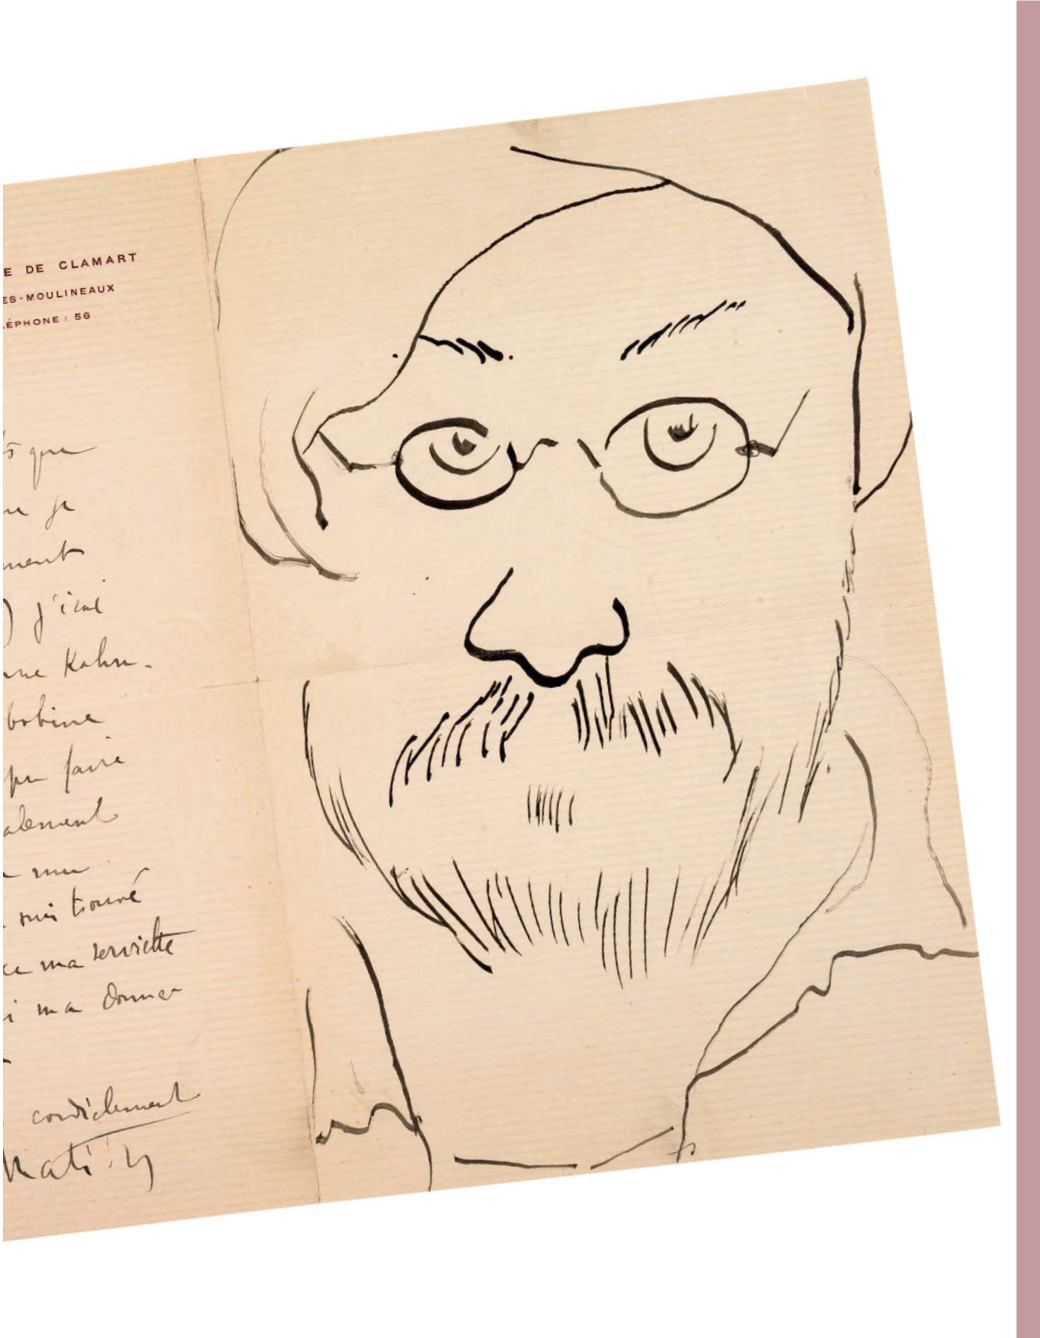 E DE CLAMART
ES-MOULINEAUX
LÉPHONE : 56
que
je
ment
) j'irai
Kahn.
bobine
pu faire
alement
suis trouvé
ce ma serviette
i m'a donné
cordialement
Matisse